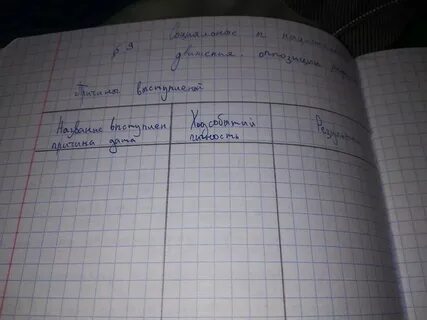 § 9 Социальные и национальные
движения. оппозиция
Причины выступлений
Название выступлен причина дата
Ход событий личность
Результаты